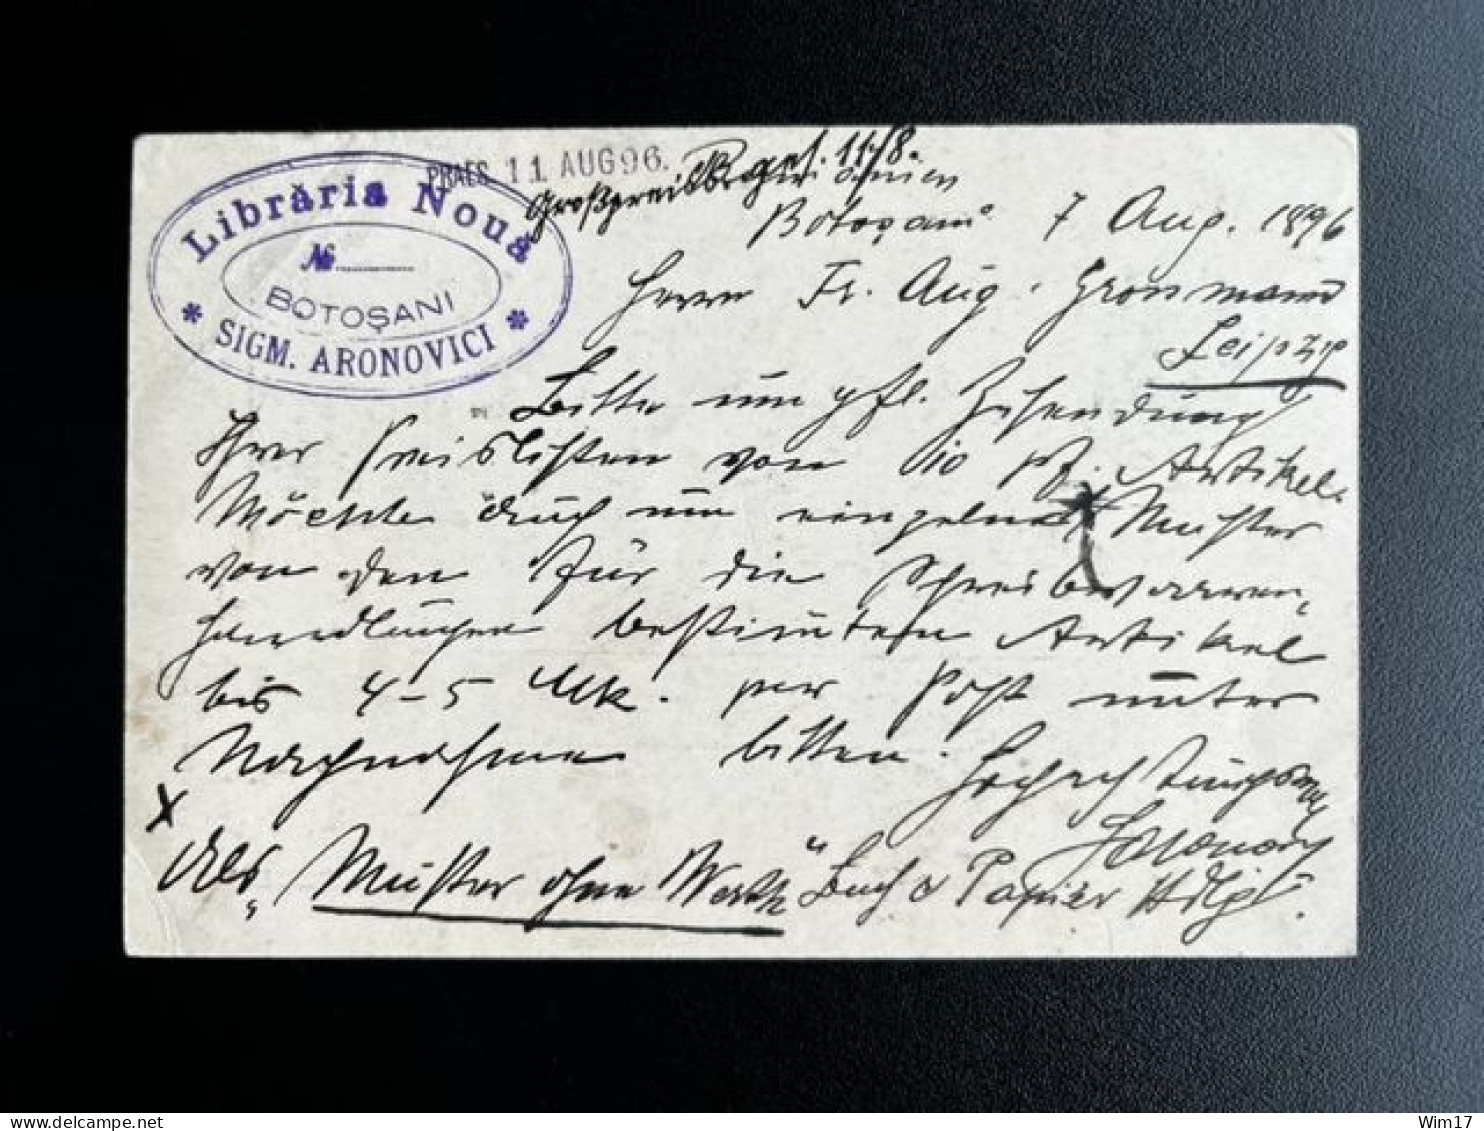 Librăria Nouă
№
BOTOȘANI
* SIGM. ARONOVICI *
PRAES. 11 AUG 96.
Großpreisb. gef. 11/8.
Botoșani 7 Aug. 1896
Herrn Fr. Aug. Grossmann
Leipzig
Bitte um gfl. Zusendung
Ihrer Preislisten von 10 Pf. Artikel.
Möchte auch um einzelne Muster
von den für die Schreibwaaren-
handlungen bestimten Artikel
bis 4-5 Mk. per Post unter
Nachnahme bitten.
Hochachtungsvoll
X
als „Muster ohne Werth“
Buch & Papier Hdlg.
Wim17